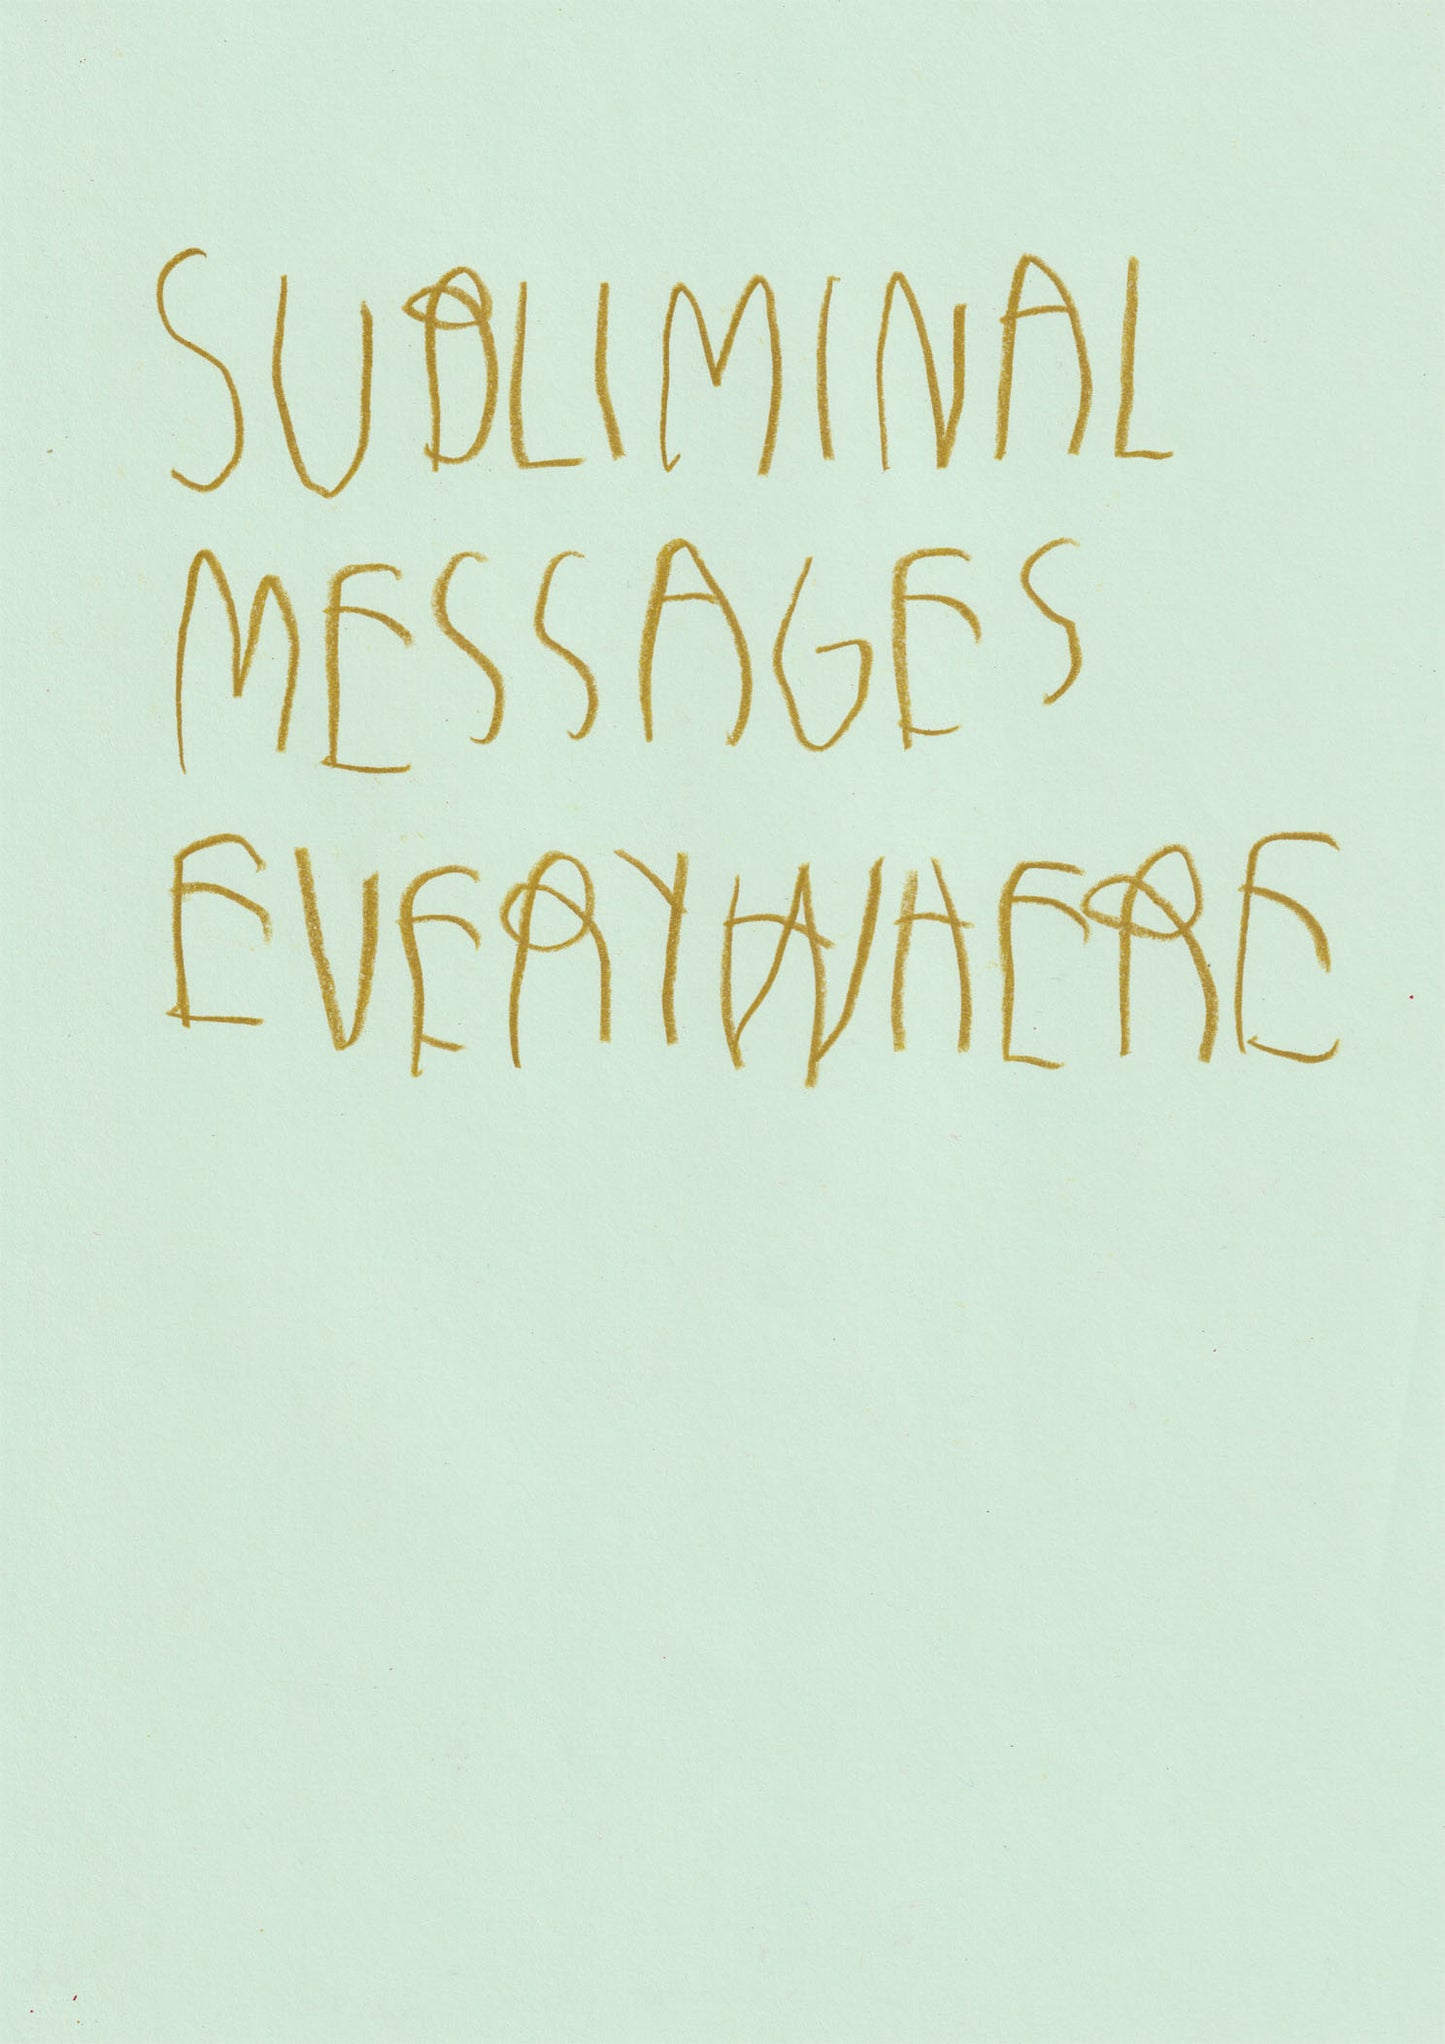 SUBLIMINAL
MESSAGES
EVERYWHERE